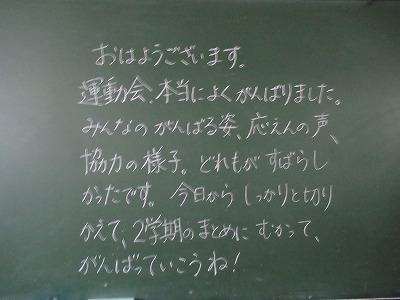 おはようございます。
運動会、本当によくがんばりました。
みんなのがんばる姿、応えんの声、
協力の様子。どれもがすばらし
かったです。今日からしっかりと切り
かえて、2学期のまとめにむかって、
がんばっていこうね!